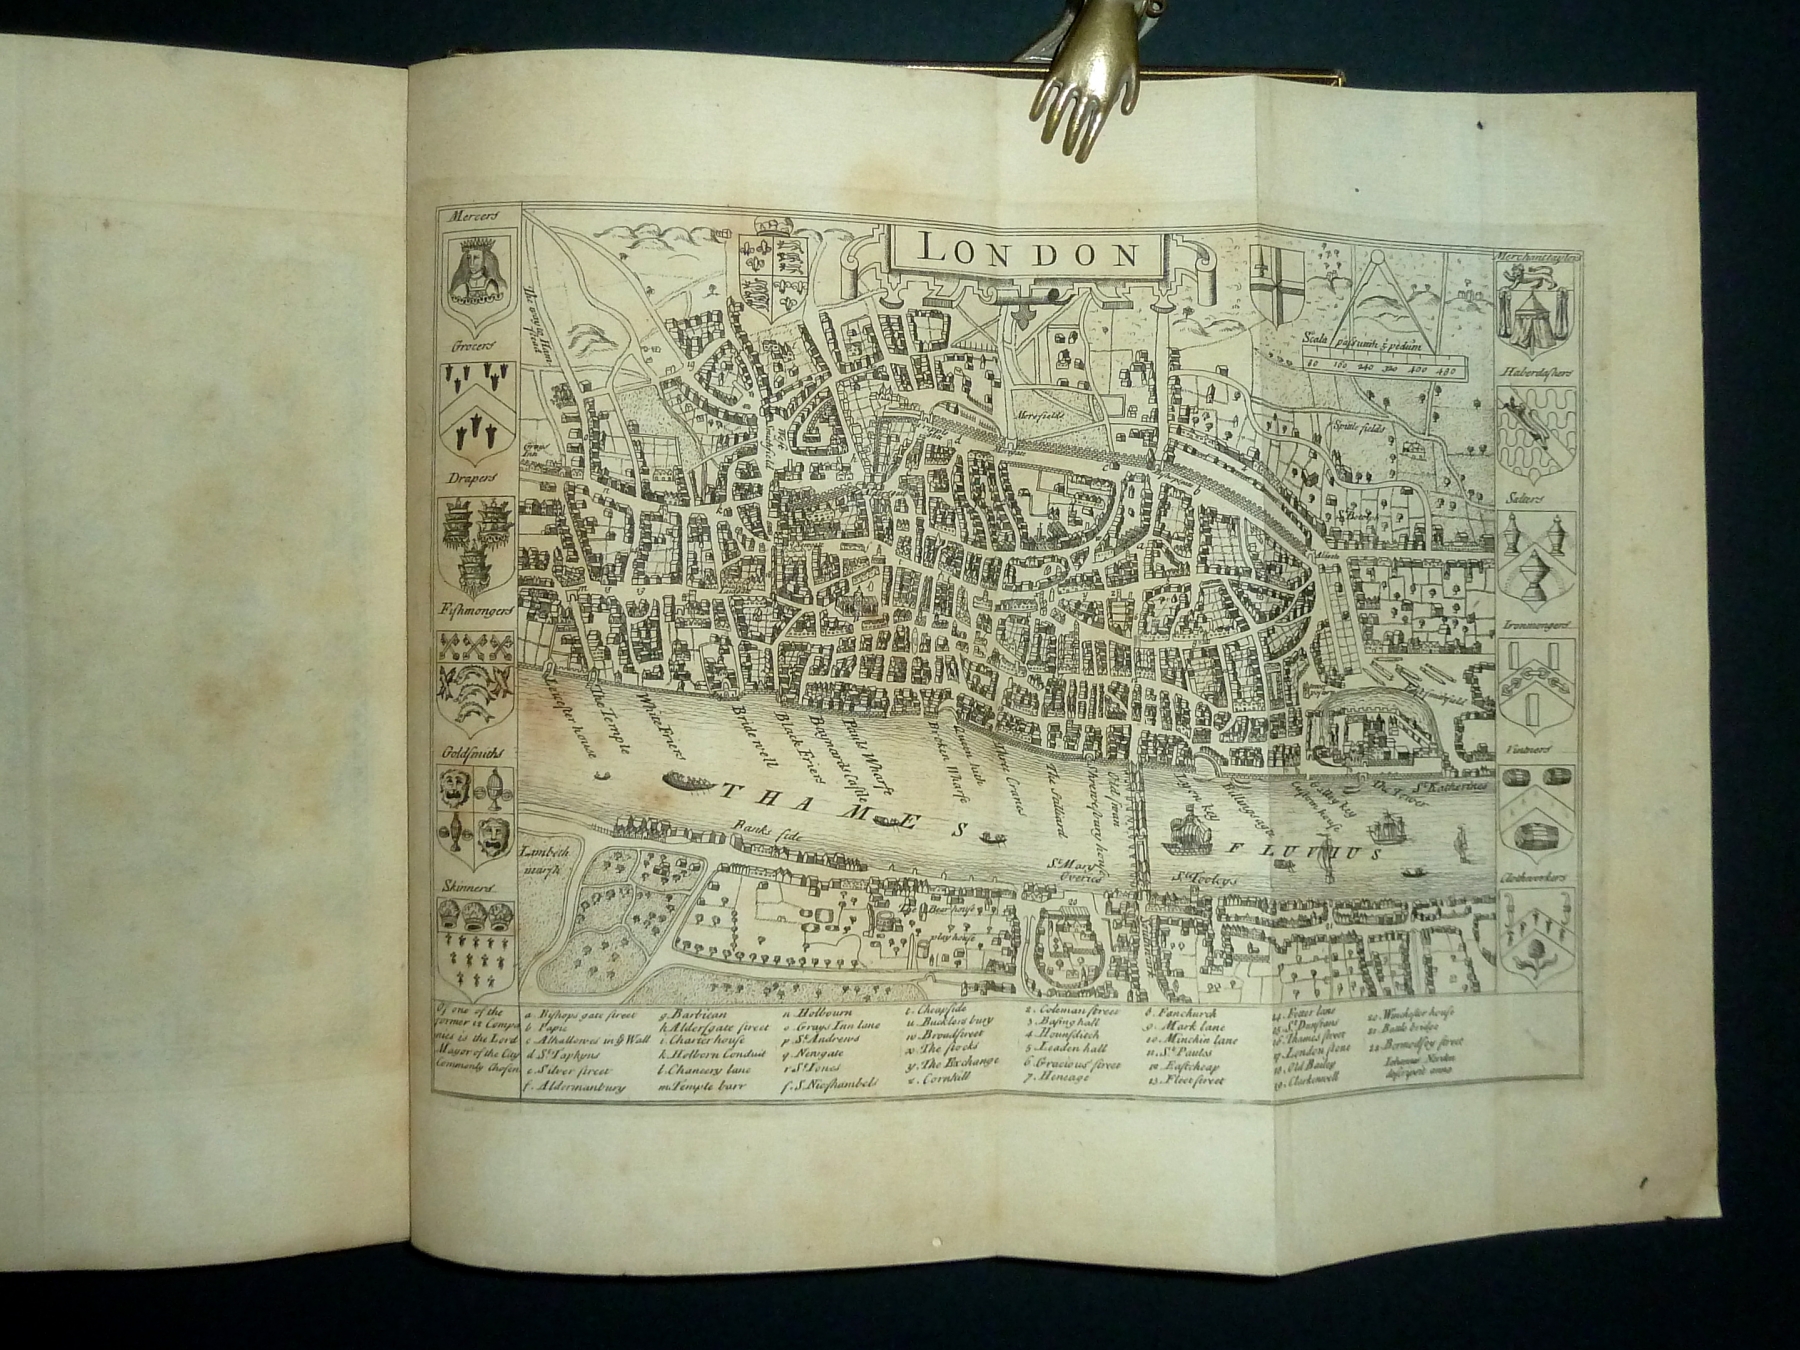 LONDON
Mercers
Grocers
Drapers
Fishmongers
Goldsmiths
Skinners
Merchanttaylers
Haberdashers
Salters
Ironmongers
Vintners
Clothworkers
Scala passuum
80 160 240 320 400 480
Morefields
Spittlefields
Grays
Inn
Leycester house
The Temple
White Friers
Bridewell
Black Friers
Baynards Castle
Pauls Wharfe
Broken Wharfe
Three Cranes
The Stiliard
Old swan
Lyon key
Billingsgate
Custom house
The Tower
St Katherines
THAMES
FLUVIUS
Banks side
Lambeth
marsh
St Mary
Overies
St Tooleys
The Bear house
play house
Of one of the
former 12 Compa
nies is the Lord
Mayor of the City
Commonly Chosen
a. Bishops gate street
b. Papie
c. Alhallowes in ye Wall
d. St Taphyns
e. Silver street
f. Aldermanbury
g. Barbican
h. Aldersgate street
i. Charterhouse
k. Holborn Conduit
l. Chancery lane
m. Temple barr
n. Holbourn
o. Grays Inn lane
p. St Andrews
q. Newgate
r. St Iones
s. S. Nicshambels
t. Cheapside
u. Bucklers bury
w. Broadstreet
x. The stocks
y. The Exchange
z. Cornhill
2. Coleman street
3. Basinghall
4. Hounsditch
5. Leaden hall
6. Gracious street
7. Heneage
8. Fanchurch
9. Mark lane
10. Minchin lane
11. St Paules
12. Eastcheap
13. Fleet street
14. Fetter lane
15. St Dunstans
16. Thames street
17. London stone
18. Old Bailey
19. Clarkenwell
20. Winchester house
21. Battle bridge
22. Bermodsey street
Iohannes Norden
descripsit anno